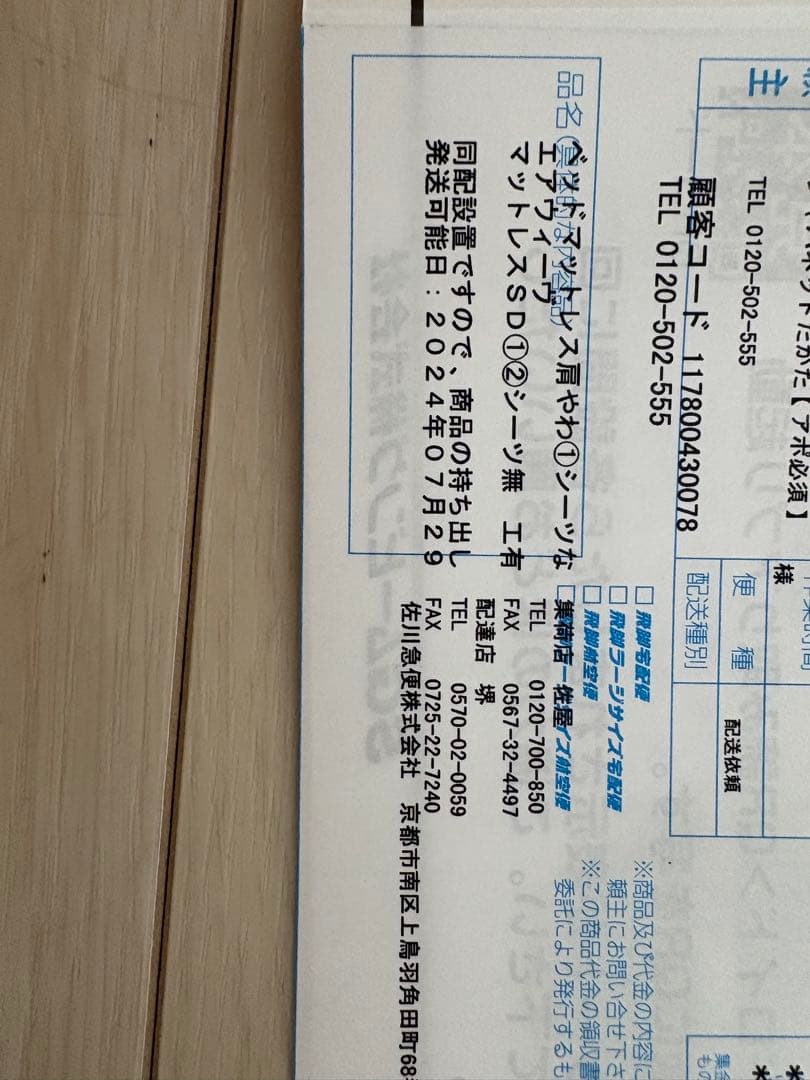 主
ネットたかた【アポ必須】
様
TEL 0120-502-555
顧客コード 117800430078
TEL 0120-502-555
便種
配送種別
配送依頼
品名(具体的な内容品)
ベッドマットレス肩やわ①シーツな
エアウィーヴ
マットレスSD①②シーツ無 工有
同配設置ですので、商品の持ち出し
発送可能日:2024年07月29
□飛脚宅配便
□飛脚ラージサイズ宅配便
□飛脚航空便
イズ航空便
集荷店 佐屋
TEL 0120-700-850
FAX 0567-32-4497
配達店 堺
TEL 0570-02-0059
FAX 0725-22-7240
佐川急便株式会社 京都市南区上鳥羽角田町68
※商品及び代金の内容に
頼主にお問い合せ下さ
※この商品代金の領収書
委託により発行するも
集金
もの